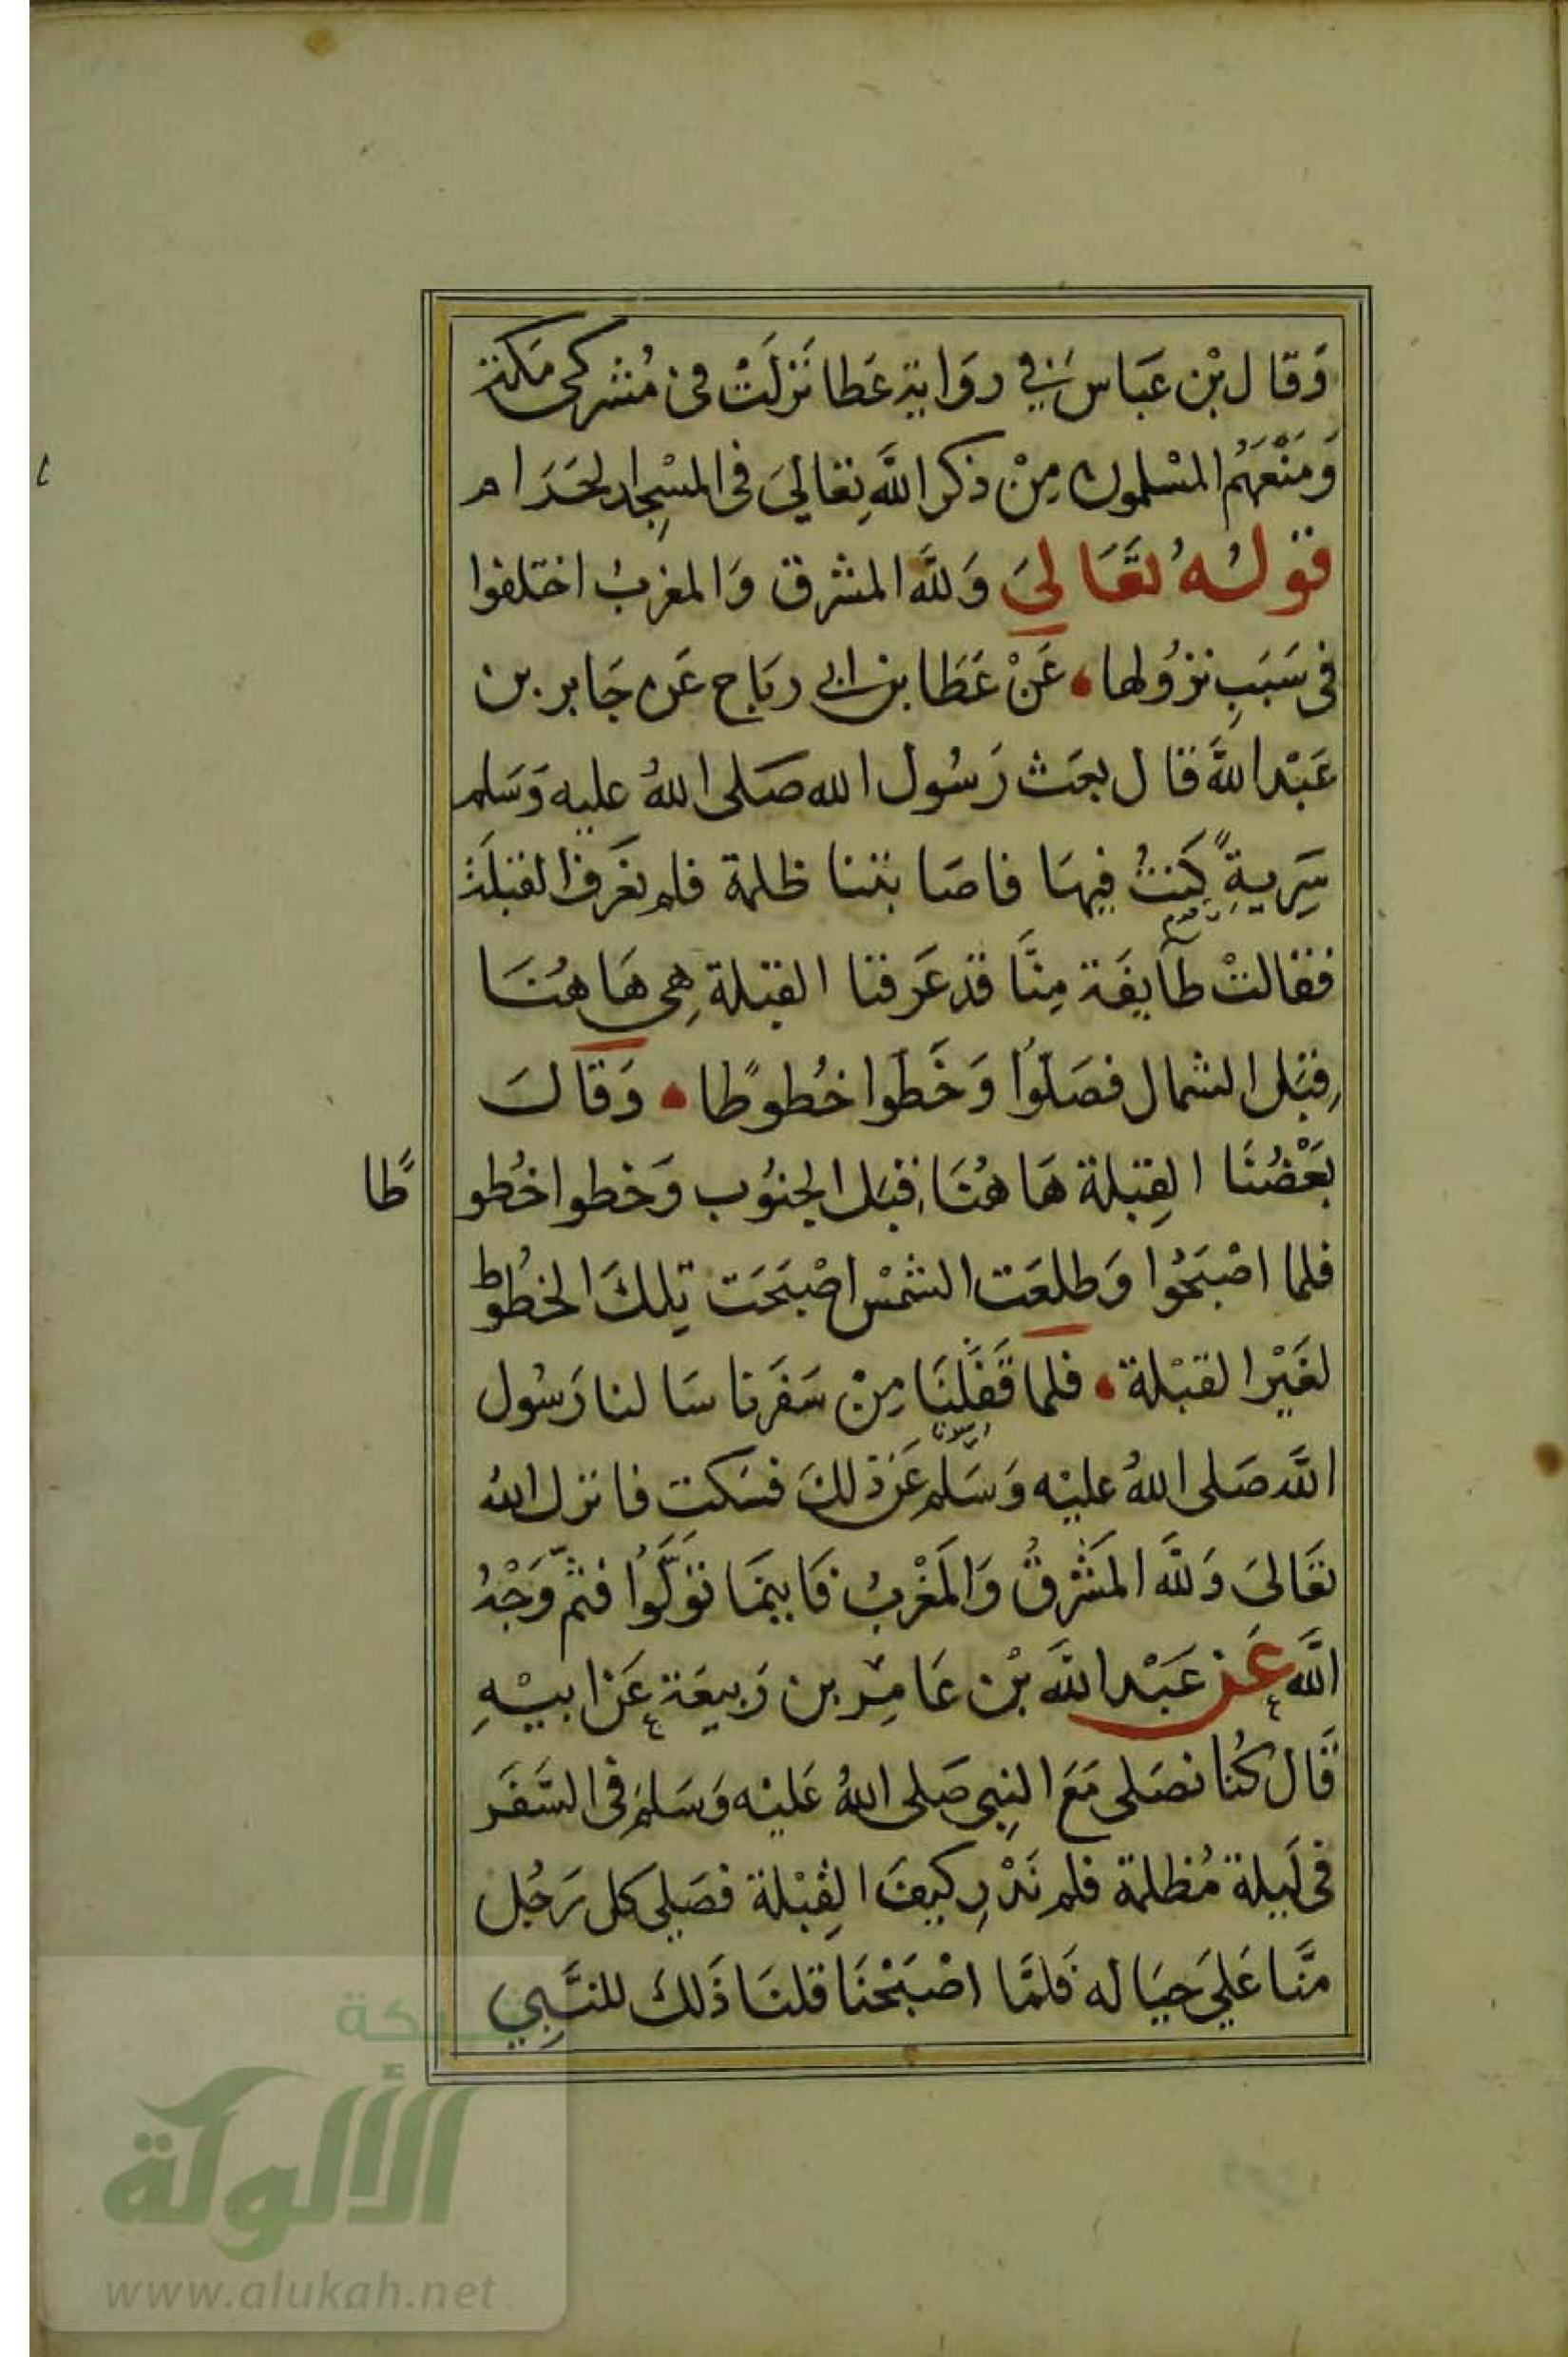 وَقال بْن عَبَاس في رِوَاية عَطا نَزلَتْ في مُشركى مَكة
وَمَنْعَهُم المسْلمون مِنْ ذكر اللَّه تعَالىَ فى المسْجد الحَرَام
قولهُ تعَالىَ وَللَّه المشرق وَالمغرب اختلفوا
فى سَبَبِ نزوُلها، عَنْ عَطَا بن ابى رباح عَن جَابر بن
عَبْد اللَّه قال بعَث رَسُول الله صَلى اللهُ عليه وَسَلم
سَرِيةً كُنتُ فيهَا فاصَابتنا ظلمة فلم نعَرف القبلَة
فقالتْ طآيفَة مِنَّا قد عَرَفنا القبلة هِي هَاهُنَا
قِبَل الشمال فصَلوُا وَخَطوا خُطوطًا، وَقَالَ
بَعْضُنَا القِبلة هَاهُنَا قبَل الجنوُب وَخطوا خُطو طًا
فلما اصْبَحُوا وَطلعَت الشمْس اصْبَحَت تِلكَ الخطُوط
لغَيْر القبْلة، فلما قَفَلنَا مِنْ سَفَرنا سَالنا رَسُول
اللَّه صَلى اللهُ عليْه وَسَلَّم عَن ذلكَ فسَكت فانزل اللهُ
تعَالىَ وَللَّه المَشْرقُ وَالمَغْربُ فَاينمَا توَلَّوُا فثمَّ وَجْهُ
اللَّه عَن عَبْد اللَّه بْن عَامِر بن رَبيعَة عَن ابيْهِ
قَال كُنا نصَلى مَعَ النبِى صَلى اللهُ عَليْه وَسَلمَ فى السَّفَر
فى لَيلة مُظلمة فلم نَدْرِ كيفَ القِبْلة فصَلى كل رَجُل
منَّا عَلىَ حيَاله فَلمَّا اصْبَحْنَا قلنَا ذَلكَ للنَّبِي
شبكة
الألوكة
www.alukah.net